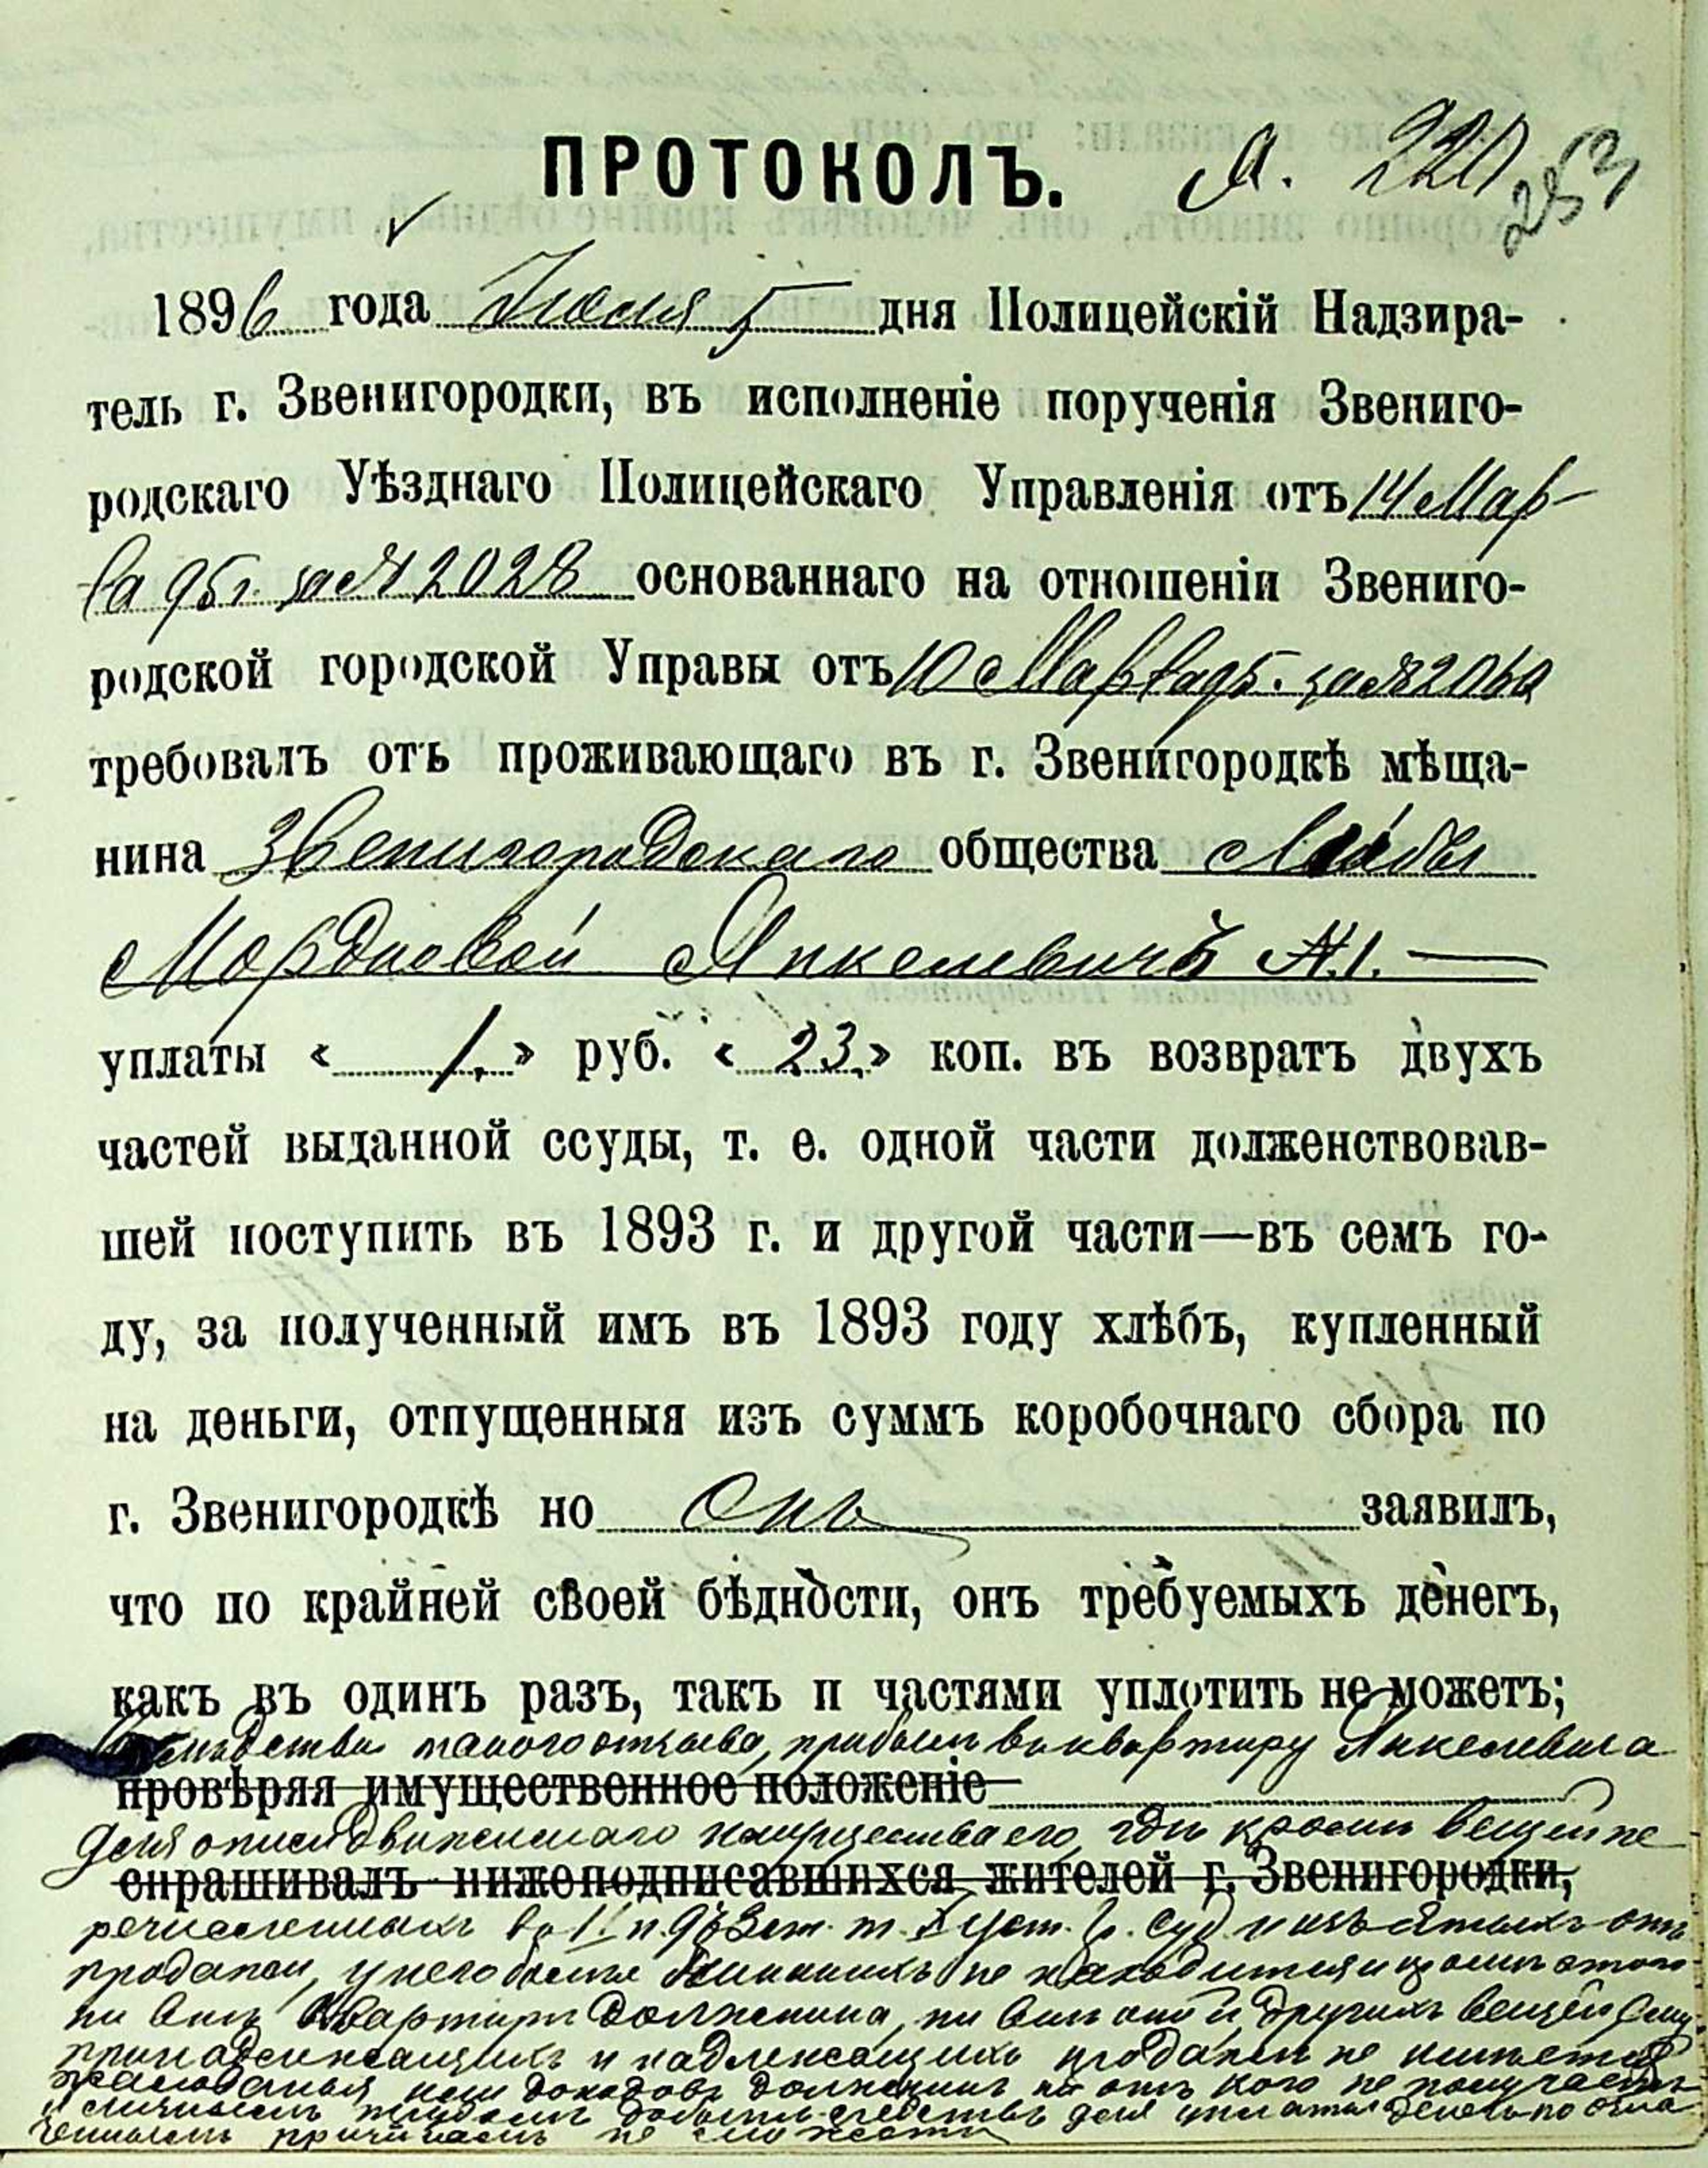 ПРОТОКОЛЪ.
253
1896 года Іюня 5 дня Полицейскій Надзира-
тель г. Звенигородки, въ исполненіе порученія Звениго-
родскаго Уѣзднаго Полицейскаго Управленія отъ 14 Мар-
та 95 г. за № 2028 основаннаго на отношеніи Звениго-
родской городской Управы отъ 10 Марта 95. за № 2060
требовалъ отъ проживающаго въ г. Звенигородкѣ мѣща-
нина Звенигородскаго общества Лейбы
Мордковой Янкелевичъ №1. —
уплаты « 1. » руб. « 23. » коп. въ возвратъ двухъ
частей выданной ссуды, т. е. одной части долженствовав-
шей поступить въ 1893 г. и другой части—въ семъ го-
ду, за полученный имъ въ 1893 году хлѣбъ, купленный
на деньги, отпущенныя изъ суммъ коробочнаго сбора по
г. Звенигородкѣ но Онъ заявилъ,
что по крайней своей бѣдности, онъ требуемыхъ денегъ,
какъ въ одинъ разъ, такъ и частями уплотить не можетъ;
такого отзыва, прибылъ въ квартиру Янкелевича
провѣряя имущественное положеніе
для описи движимаго имущества его, гдѣ кромѣ вещей пе-
спрашивалъ нижеподписавшихся жителей г. Звенигородки,
речисленныхъ въ п. 973 ст. т. Уст. Гр. Суд. и изъятыхъ отъ
продажи, у него болѣе никакихъ не находится и кромѣ этого
ни въ квартирѣ должника, ни внѣ оной, другихъ вещей ему
принадлежащихъ и надлежащихъ продажи не имѣется
жалованья или доходовъ должникъ ни отъ кого не получаетъ
и личнымъ трудомъ добыть средствъ для уплаты денегъ по озна-
ченнымъ причинамъ не можетъ